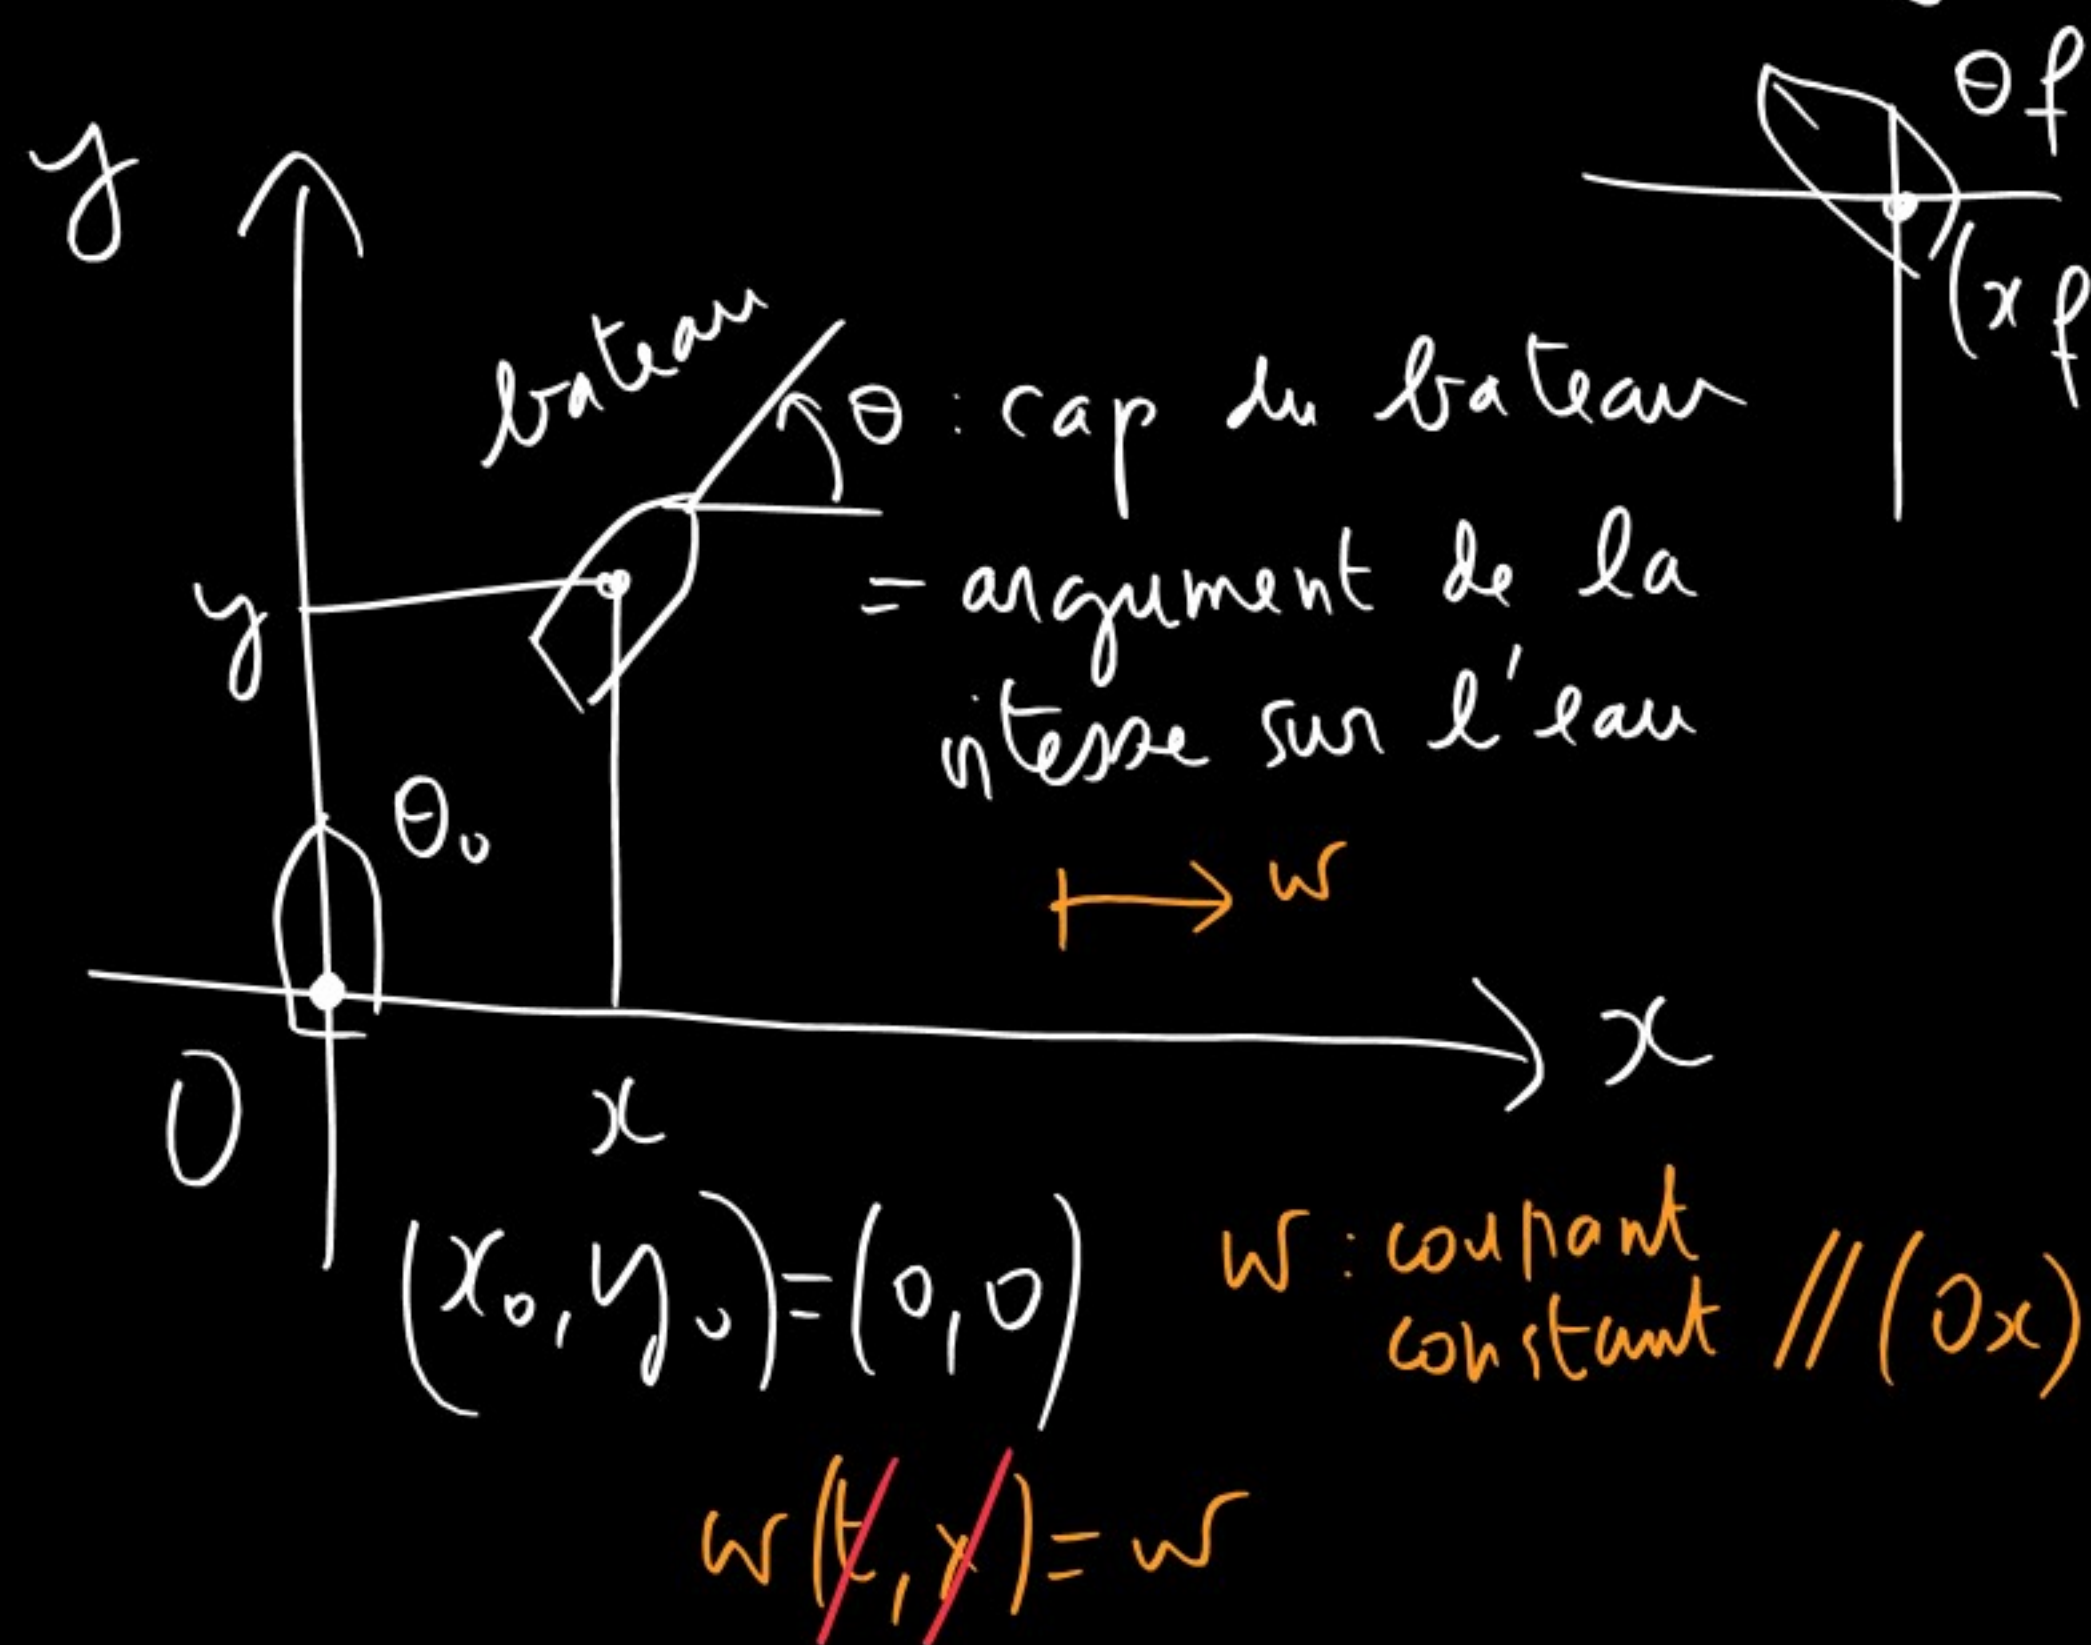 y
θf
(xf
bateau
θ : cap du bateau
= argument de la
vitesse sur l'eau
y
θ₀
w
x
0
x
(x₀, y₀) = (0, 0)
w : courant
constant // (0x)
w(t, x) = w